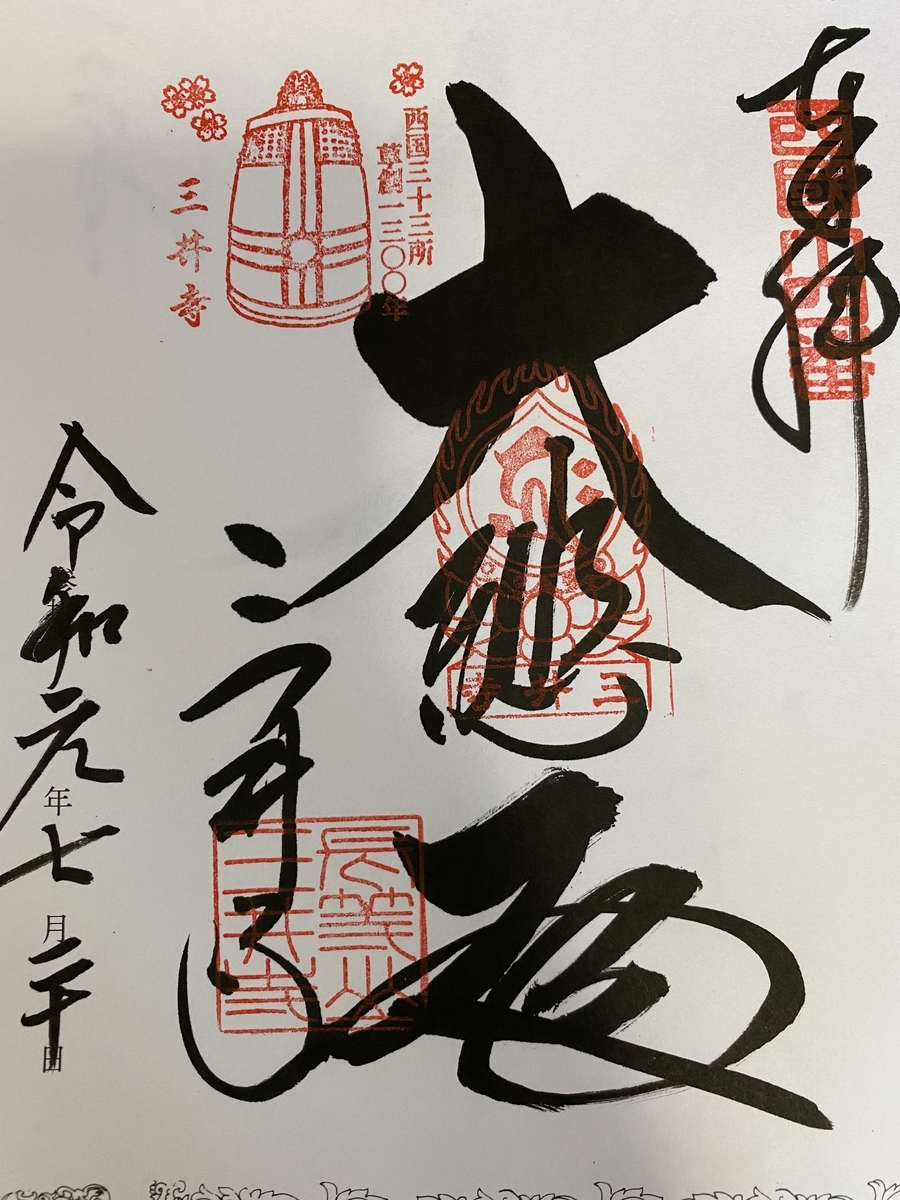 奉拝
西國十四番
大悲殿
三井寺
西国三十三所
草創一三〇〇年
三井寺
三井寺
長等山
三井寺
令和元年七月二十日